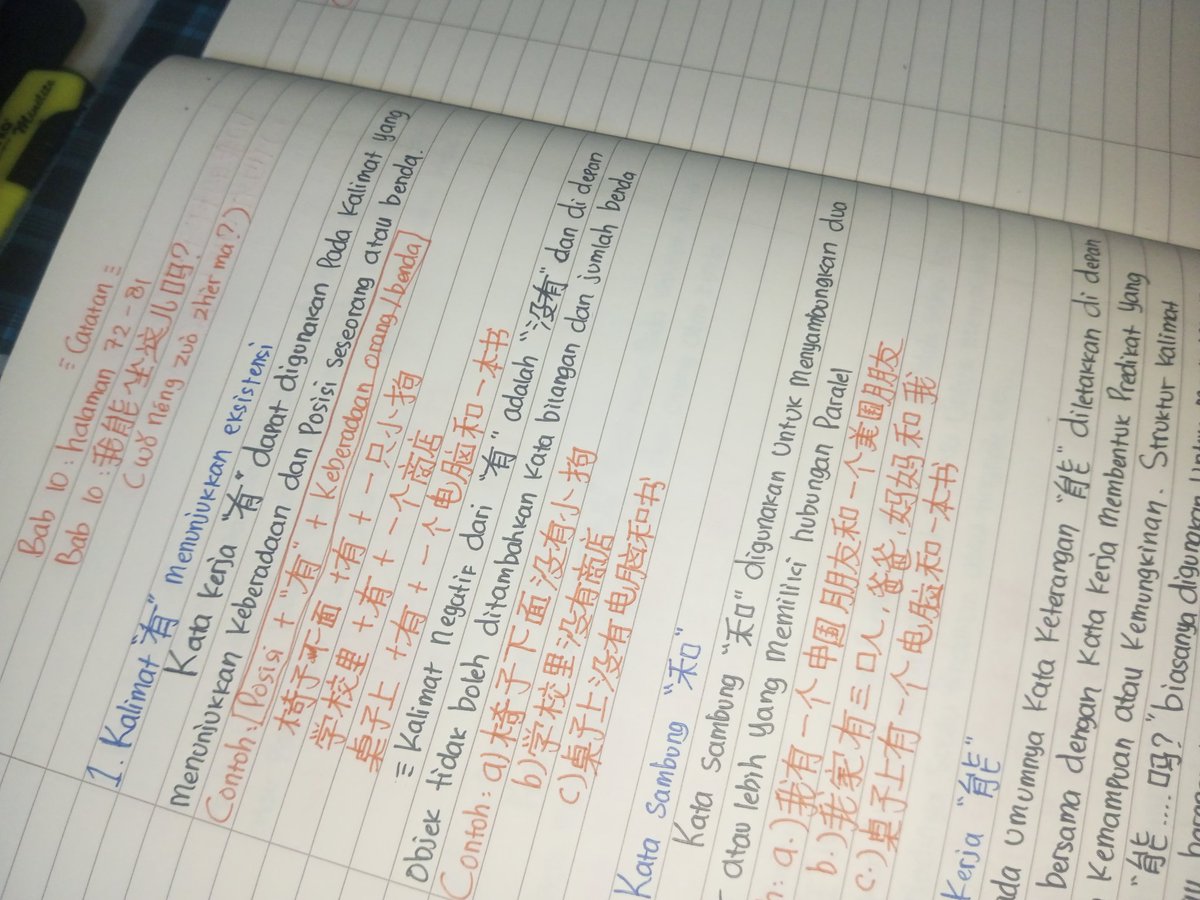 ≡ Catatan ≡
Bab 10 : halaman 72 - 81
Bab 10 : 我能坐这儿吗?
(wǒ néng zuò zhèr ma?)
1. Kalimat "有" menunjukkan eksistensi
Kata kerja "有" dapat digunakan Pada Kalimat yang
menunjukkan keberadaan dan Posisi seseorang atau benda.
Contoh : Posisi + "有" + Keberadaan orang/benda
椅子下面 + 有 + 一只小狗
学校里 + 有 + 一个商店
桌子上 + 有 + 一个电脑和一本书
≡ Kalimat negatif dari "有" adalah "没有" dan di depan
Objek tidak boleh ditambahkan Kata bilangan dan jumlah benda
Contoh : a) 椅子下面没有小狗
b) 学校里没有商店
c) 桌子上没有电脑和书
Kata Sambung "和"
Kata Sambung "和" digunakan untuk Menyambungkan dua
atau lebih yang memiliki hubungan Paralel
a.) 我有一个中国朋友和一个美国朋友
b.) 我家有三口人, 爸爸, 妈妈和我
c.) 桌子上有一个电脑和一本书
Kerja "能"
umumnya Kata Keterangan "能" diletakkan di depan
bersama dengan Kata Kerja membentuk Predikat yang
Kemampuan atau Kemungkinan. Struktur Kalimat
"能....吗?" biasanya digunakan